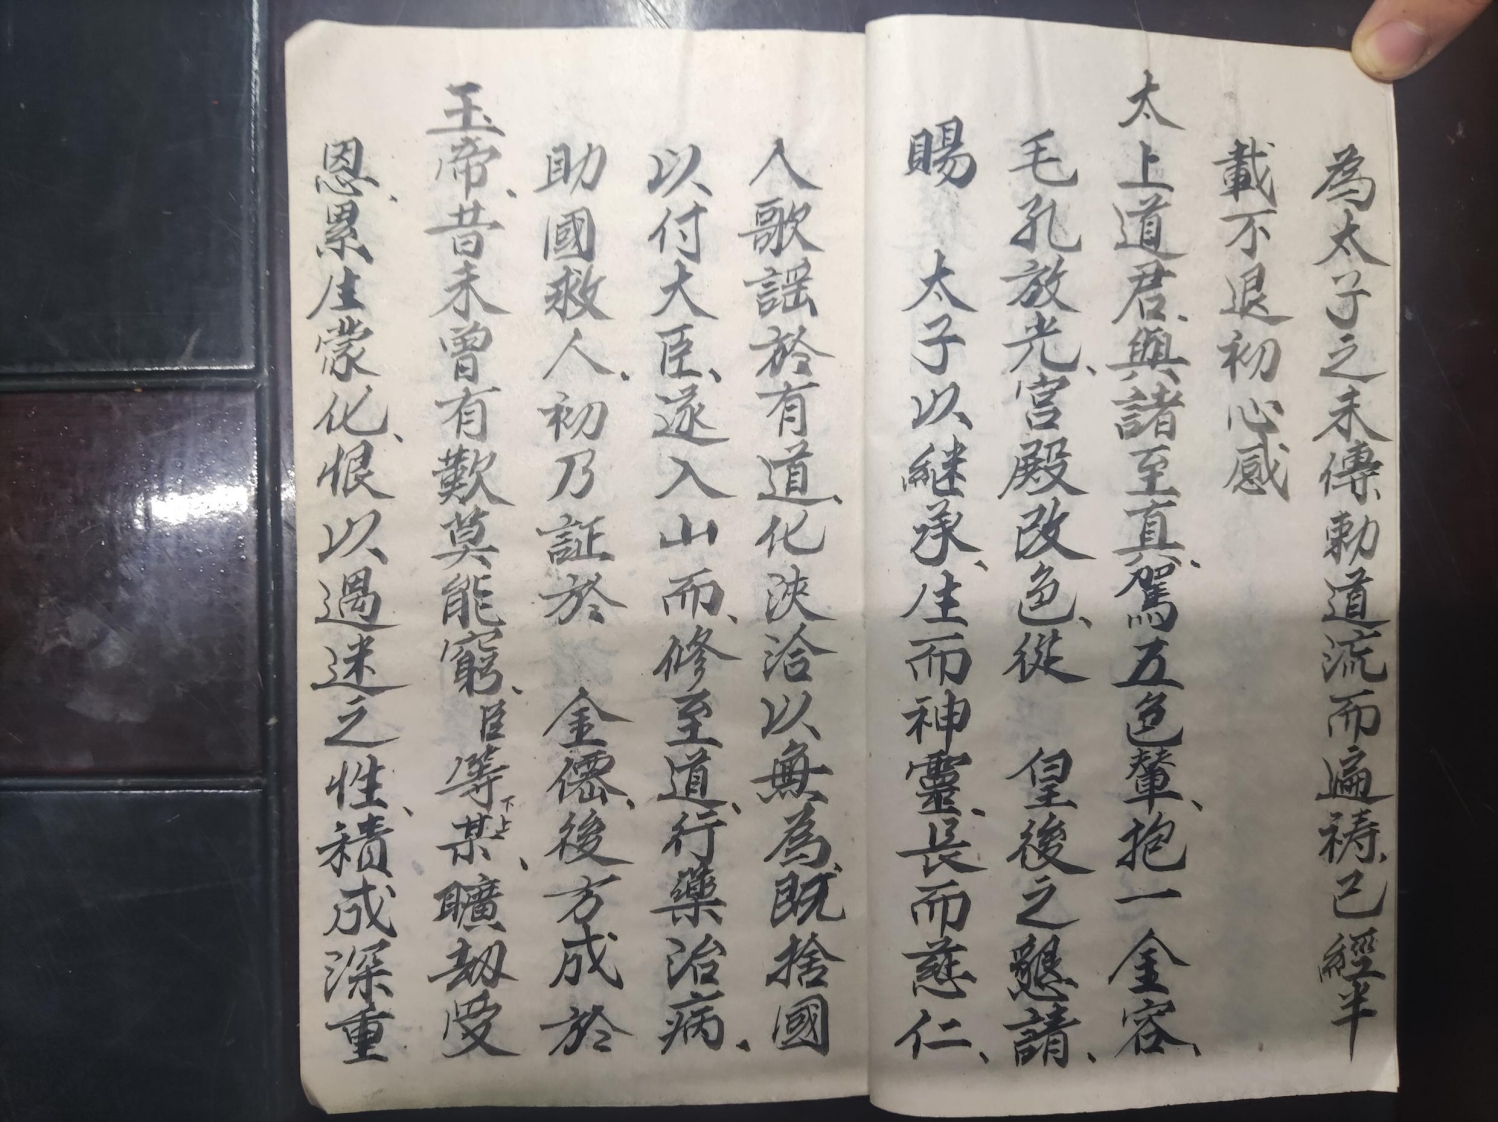 為太子之未傳勅道流而遍禱、已經半
載不退初心感
太上道君、與諸至真、駕五色輦、抱一金容、
毛孔放光、宮殿改色、從　皇後之懇請、
賜　太子以継承、生而神靈、長而慈仁、
人歌謡於有道、化浹洽以無為、既捨國
以付大臣、遂入山而、修至道、行藥治病、
助國救人、初乃証於　金僊、後方成於
玉帝、昔未曾有歎莫能窮、臣等下上某、曠劫受
恩、累生蒙化、恨以遇迷之性、積成深重